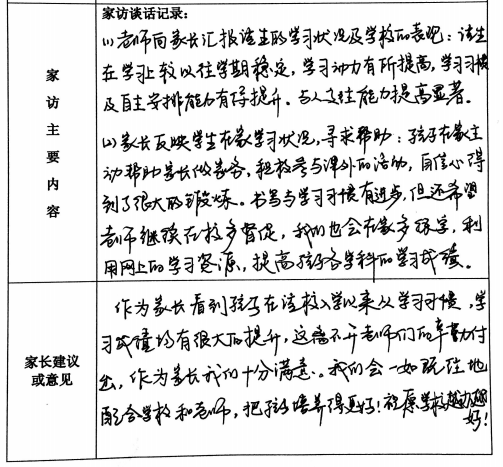 家访主要内容
家访谈话记录：
(1)老师向家长汇报该生的学习状况及学校的表现：该生
在学习上较以往学期稳定，学习动力有所提高，学习习惯
及自主安排能力有待提升。与人交往能力提高显著。
(2)家长反映学生在家学习状况，寻求帮助：孩子在家主
动帮助家长做家务，积极参与课外的活动，自信心得
到了很大的锻炼。书写与学习习惯有进步，但还希望
老师继续在校多督促，我们也会在家多练字，利
用网上的学习资源，提高孩子各学科的学习成绩。
家长建议
或意见
作为家长看到孩子在该校入学以来从学习习惯，学
习成绩均有很大的提升，这离不开老师们的辛勤付
出，作为家长我们十分满意。我们会一如既往地
配合学校和老师，把孩子培养得更好！祝愿学校越办越
好！